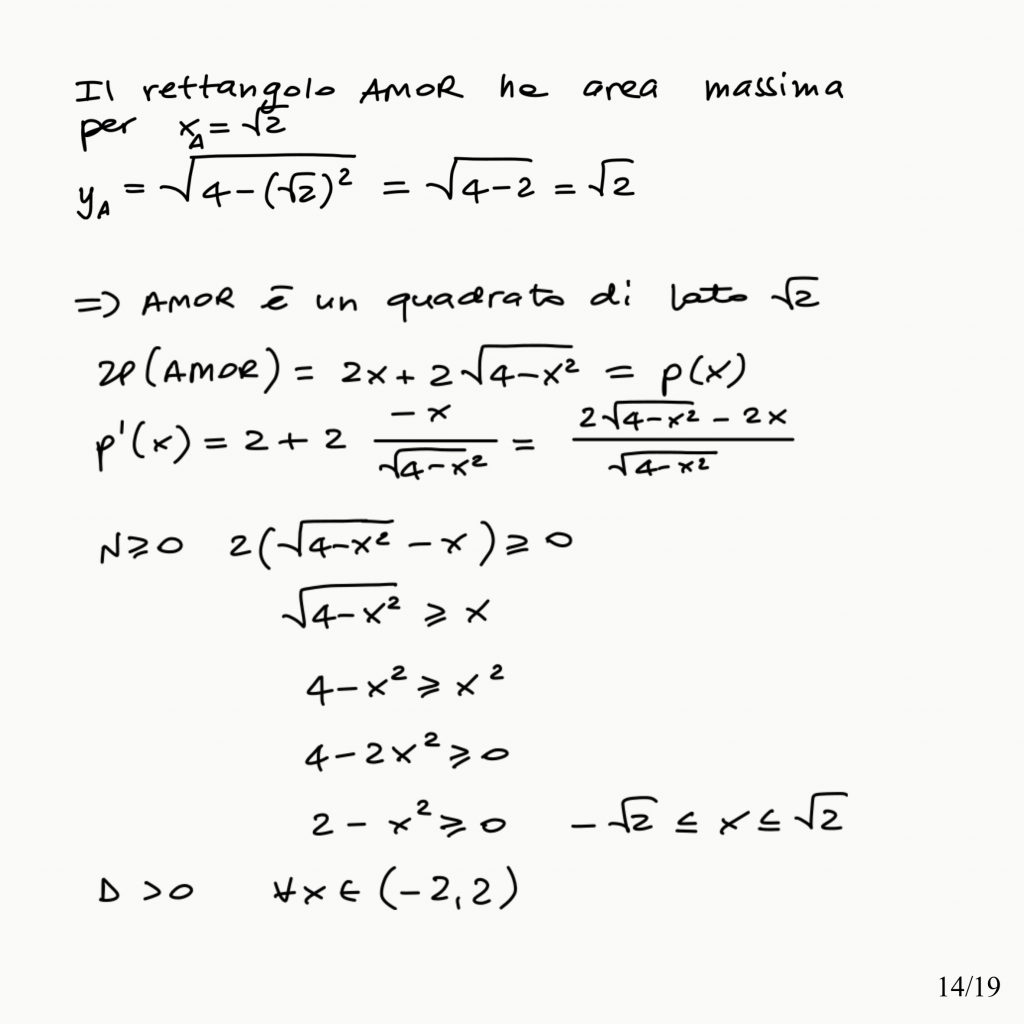 Il rettangolo AMOR ha area massima
per x_A = √2
y_A = √(4-(√2)²) = √(4-2) = √2
=> AMOR è un quadrato di lato √2
2p(AMOR) = 2x + 2√(4-x²) = p(x)
p'(x) = 2 + 2 (-x)/√(4-x²) = (2√(4-x²) - 2x)/√(4-x²)
N≥0 2(√(4-x²) - x) ≥ 0
√(4-x²) ≥ x
4-x² ≥ x²
4-2x² ≥ 0
2-x² ≥ 0 -√2 ≤ x ≤ √2
D>0 ∀x ∈ (-2,2)
14/19